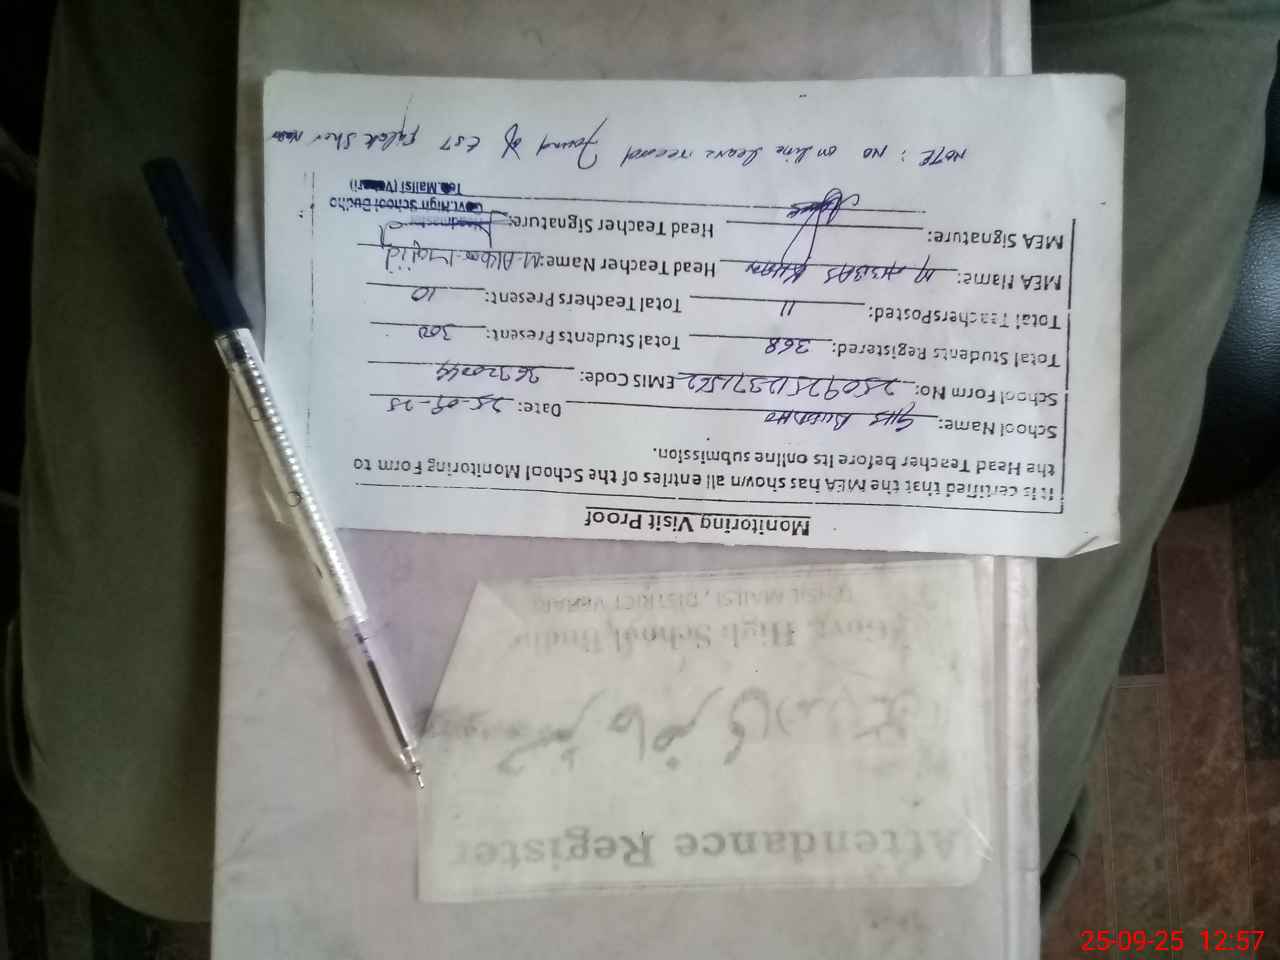 Monitoring Visit Proof
It is certified that the MEA has shown all entries of the School Monitoring Form to
the Head Teacher before its online submission.
School Name: GHS Date: 25-09-25
School Form No: EMIS Code:
Total Students Registered: 368 Total Students Present: 300
Total TeachersPosted: 11 Total Teachers Present: 10
MEA Name: M. ABBAS KHAN Head Teacher Name: M. Akbar Majid
MEA Signature: Head Teacher Signature:
Headmaster
Govt. High School Budho
Teh. Mailsi (Vehari)
NOTE: NO on line leave record Found of EST Falak Sher
Attendance Register
Govt. High School,
TEHSIL MAILSI, DISTRICT VEHARI
25-09-25 12:57